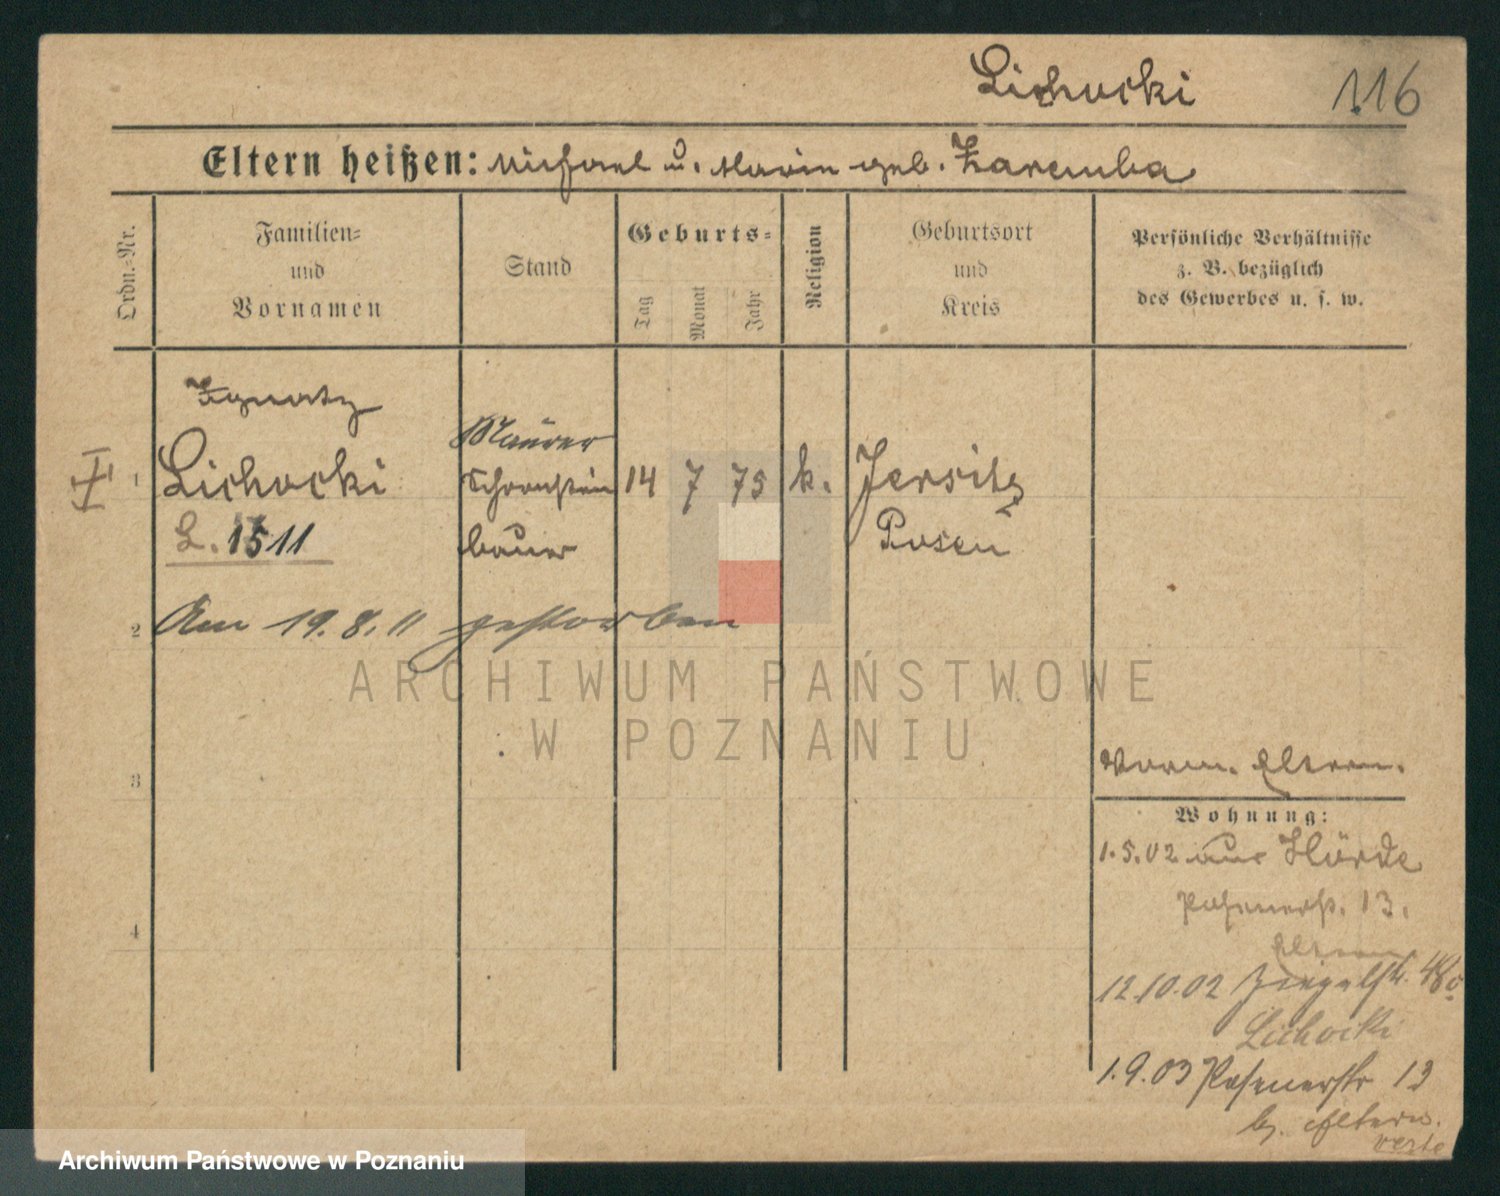 Lichocki
116
Eltern heißen: Michael u. Marie geb. Zaremba
Ordn.-Nr.
Familien-
und
Vornamen
Stand
Geburts-
Tag
Monat
Jahr
Religion
Geburtsort
und
Kreis
Persönliche Verhältnisse
z. B. bezüglich
des Gewerbes u. s. w.
Ignatz
Maurer
1 Lichocki Schornstein 14 7 75 k. Jersitz
L. 1511 bauer Posen
2 Am 19.8.11 gestorben
ARCHIWUM PAŃSTWOWE
W POZNANIU
3
Eltern.
Wohnung:
1.5.02 aus Hörde
Posenerstr. 13.
4
Eltern
12.10.02 Ziegelstr. 48
Lichocki
1.9.03 Posenerstr 13
b. Eltern.
verte
Archiwum Państwowe w Poznaniu